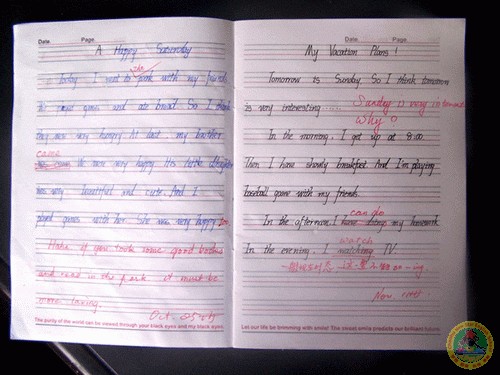 Date Page
A Happy Saturday
the
Today I went to park with my friends
games and ate bread. So I think
they was very hungry. At last my brother
came
We were very happy. His little daughter
was very beautiful and cute. And I
played games with her. She was very happy too.
Hope if you took some good books
and read in the park it must be
more
Oct. 25th
The purity of the world can be viewed through your black eyes and my black eyes.
Date Page
My Vacation Plans!
Tomorrow is Sunday. So I think tomorrow
is very interesting...... Sunday is very interesting
Why?
In the morning. I get up at 8:00.
Then I have slowly breakfast. And I'm playing
baseball game with my friends.
can do
In the afternoon. I have doing my homework
watch
In the evening. I watching TV.
-ing.
Now. right
Let our life be brimming with smile! The sweet smile predicts our brilliant future.